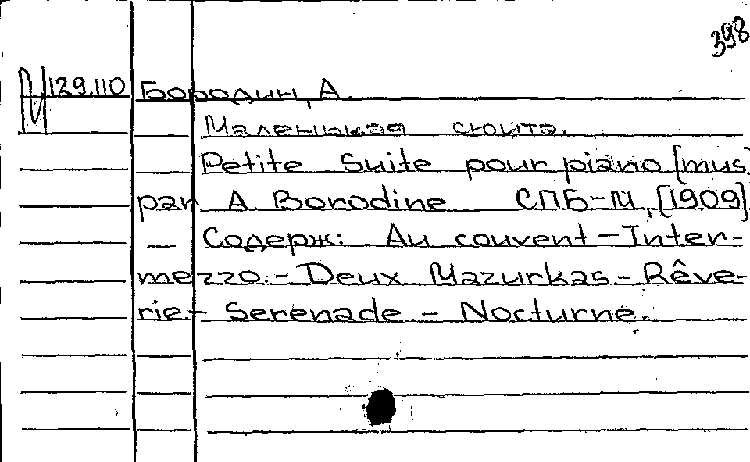 398
М 129.110 Бородин, А.
Маленькая сюита.
Petite Suite pour piano [mus
par A Borodine СПБ-М, [1909]
— Содерж: Au couvent – Inter-
mezzo. – Deux Mazurkas – Rêve-
rie – Serenade – Nocturne.